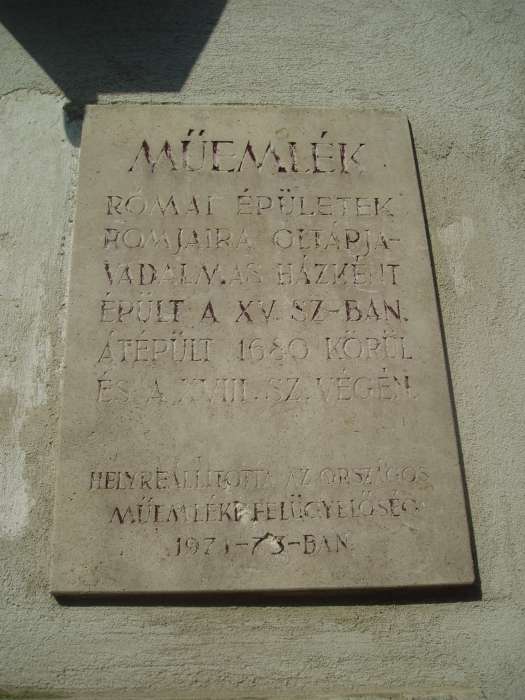 MŰEMLÉK
RÓMAI ÉPÜLETEK
ROMJAIRA OLTÁRJA-
VADALMAS HÁZKÉNT
ÉPÜLT A XV. SZ-BAN.
ÁTÉPÜLT 1680 KÖRÜL
ÉS A XVIII. SZ. VÉGÉN.
HELYREÁLLÍTOTTA AZ ORSZÁGOS
MŰEMLÉKI FELÜGYELŐSÉG
1971-73-BAN.